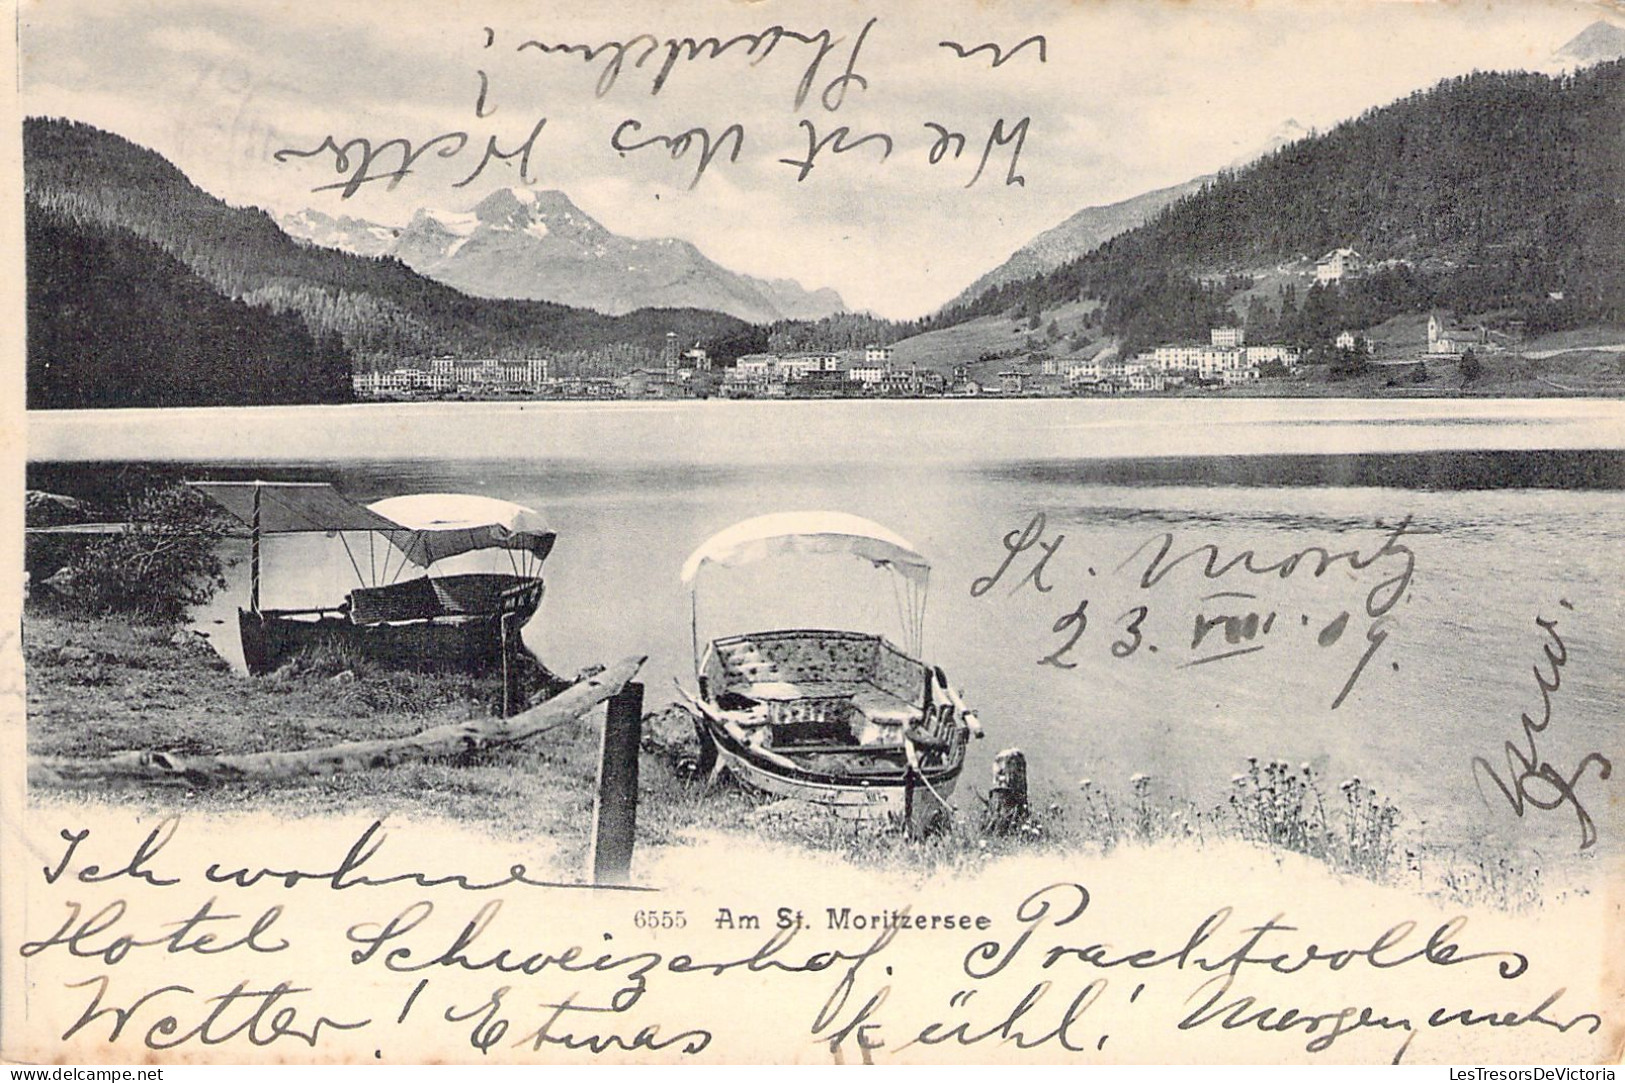 Wie ist das Wetter
in
St. Moritz
23. VIII. 09.
Ich wohne
6555 Am St. Moritzersee
Hotel Schweizerhof. Prachtvolles
Wetter! Etwas kühl! Morgen mehr
LesTresorsDeVictoria